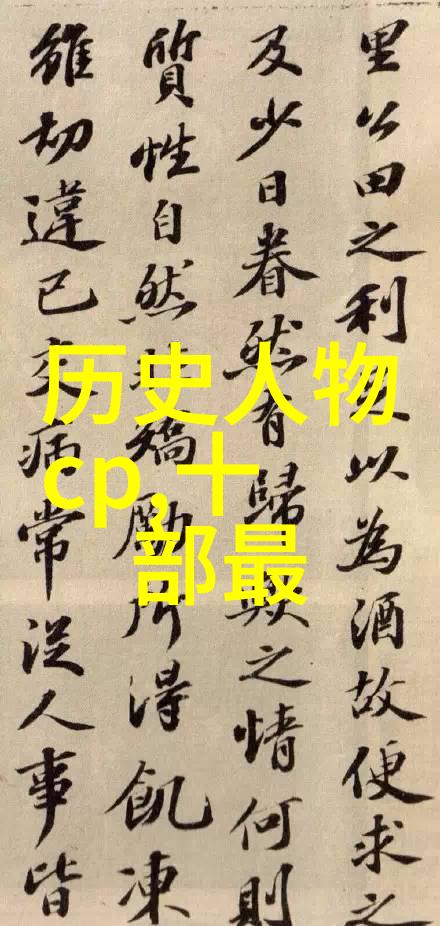 里公田之利足以為酒故便求之
及少日眷然有歸歟之情何則
質性自然非矯勵所得飢凍
雖切違己交病常從人事皆
历史人物
cp,十
部最